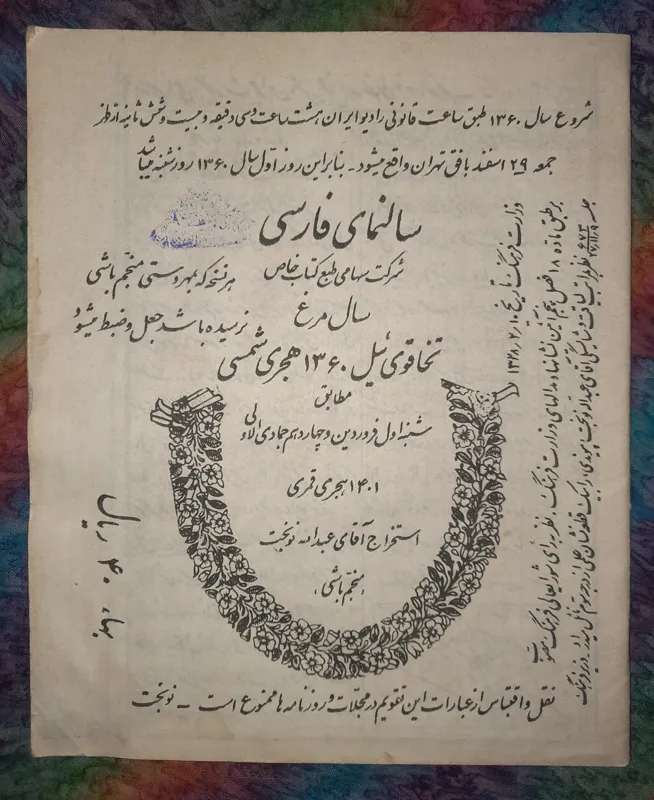 شروع سال ۱۳۶۰ طبق ساعت قانونی رادیو ایران هشت ساعت و سی دقیقه و بیست و شش ثانیه از ظهر
جمعه ۲۹ اسفند بافق تهران واقع میشود - بنابراین روز اول سال ۱۳۶۰ روز شنبه میباشد
سالنمای فارسی
شرکت سهامی طبع کتاب خاص
هر نسخه که بمهر وستی منجم باشی
سال مرغ
نرسیده باشد جعل و ضبط میشود
تخاقوی ئیل ۱۳۶۰ هجری شمسی
مطابق
شنبه اول فروردین و چهاردهم جمادی الاولی
۱۴۰۱ هجری قمری
استخراج آقای عبدالله نوبخت
منجم باشی
نقل و اقتباس از عبارات این تقویم در مجلات و روزنامه ها ممنوع است - نوبخت
بهاء ۴۰ ریال
وزارت فرهنگ تاریخ ۱۳۲۸/۲/۱۰
بر طبق ماده ۱۸ فصل پنجم آئین نشانها و مدالهای وزارت فرهنگ، نظر برأی شورایعالی فرهنگ مصوب
جلسه ۶۲۳ نظر بمراتب لیاقت و شایستگی آقای عبدالله نوبخت یک قطعه نشان علمی از درجه سوم وزیر فرهنگ